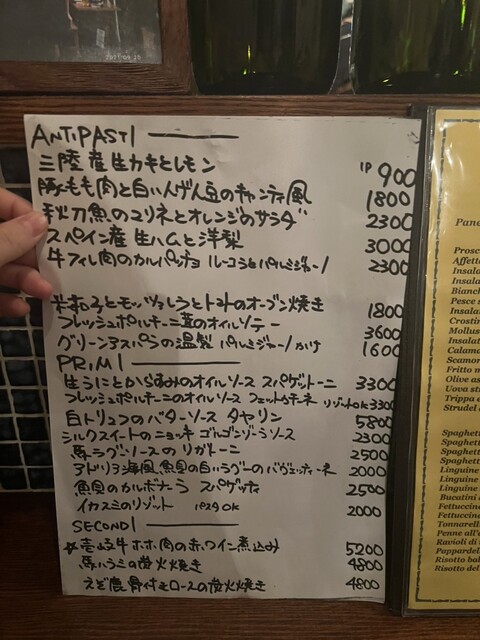 2021.09.28
ANTIPASTI
三陸産生カキとレモン 1P 900
豚もも肉と白いんげん豆のキャンティ風 1800
秋刀魚のマリネとオレンジのサラダ 2300
スペイン産 生ハムと洋梨 3000
牛フィレ肉のカルパッチョ ルーコラとパルミジャーノ 2300
米茄子とモッツァレラとトマトのオーブン焼き 1800
フレッシュポルチーニ茸のオイルソテー 3600
グリーンアスパラの温製 パルミジャーノがけ 1600
PRIMI
生うにとからすみのオイルソース スパゲットーニ 3300
フレッシュポルチーニのオイルソース フェットチーネ リゾットOK 3300
白トリュフのバターソース タヤリン 5800
シルクスイートのニョッキ ゴルゴンゾーラソース 2300
馬ラグソースのリガトーニ 2500
アドリア海風 魚貝の白いラグーのバヴェッティーネ 2000
魚貝のカルボナーラ スパゲッティ 2500
イカスミのリゾット パスタOK 2000
SECONDI
☆壱岐牛ホホ肉の赤ワイン煮込み 5200
馬ハラミの炭火焼き 4800
えぞ鹿骨付きロースの炭火焼き 4800
Pane
Prosc
Affetta
Insala
Insala
Bianch
Pesce s
Insalat
Crostin
Mollus
Insalat
Calama
Scamor
Fritto m
Olive as
Uova stu
Trippa
Strudel
Spaghett
Spaghett
Spaghett
Spaghett
Linguine
Linguine
Linguine
Bucatini
Fettuccin
Fettuccin
Tonnarell
Penne all'
Ravioli di
Pappardel
Risotto bal
Risotto del